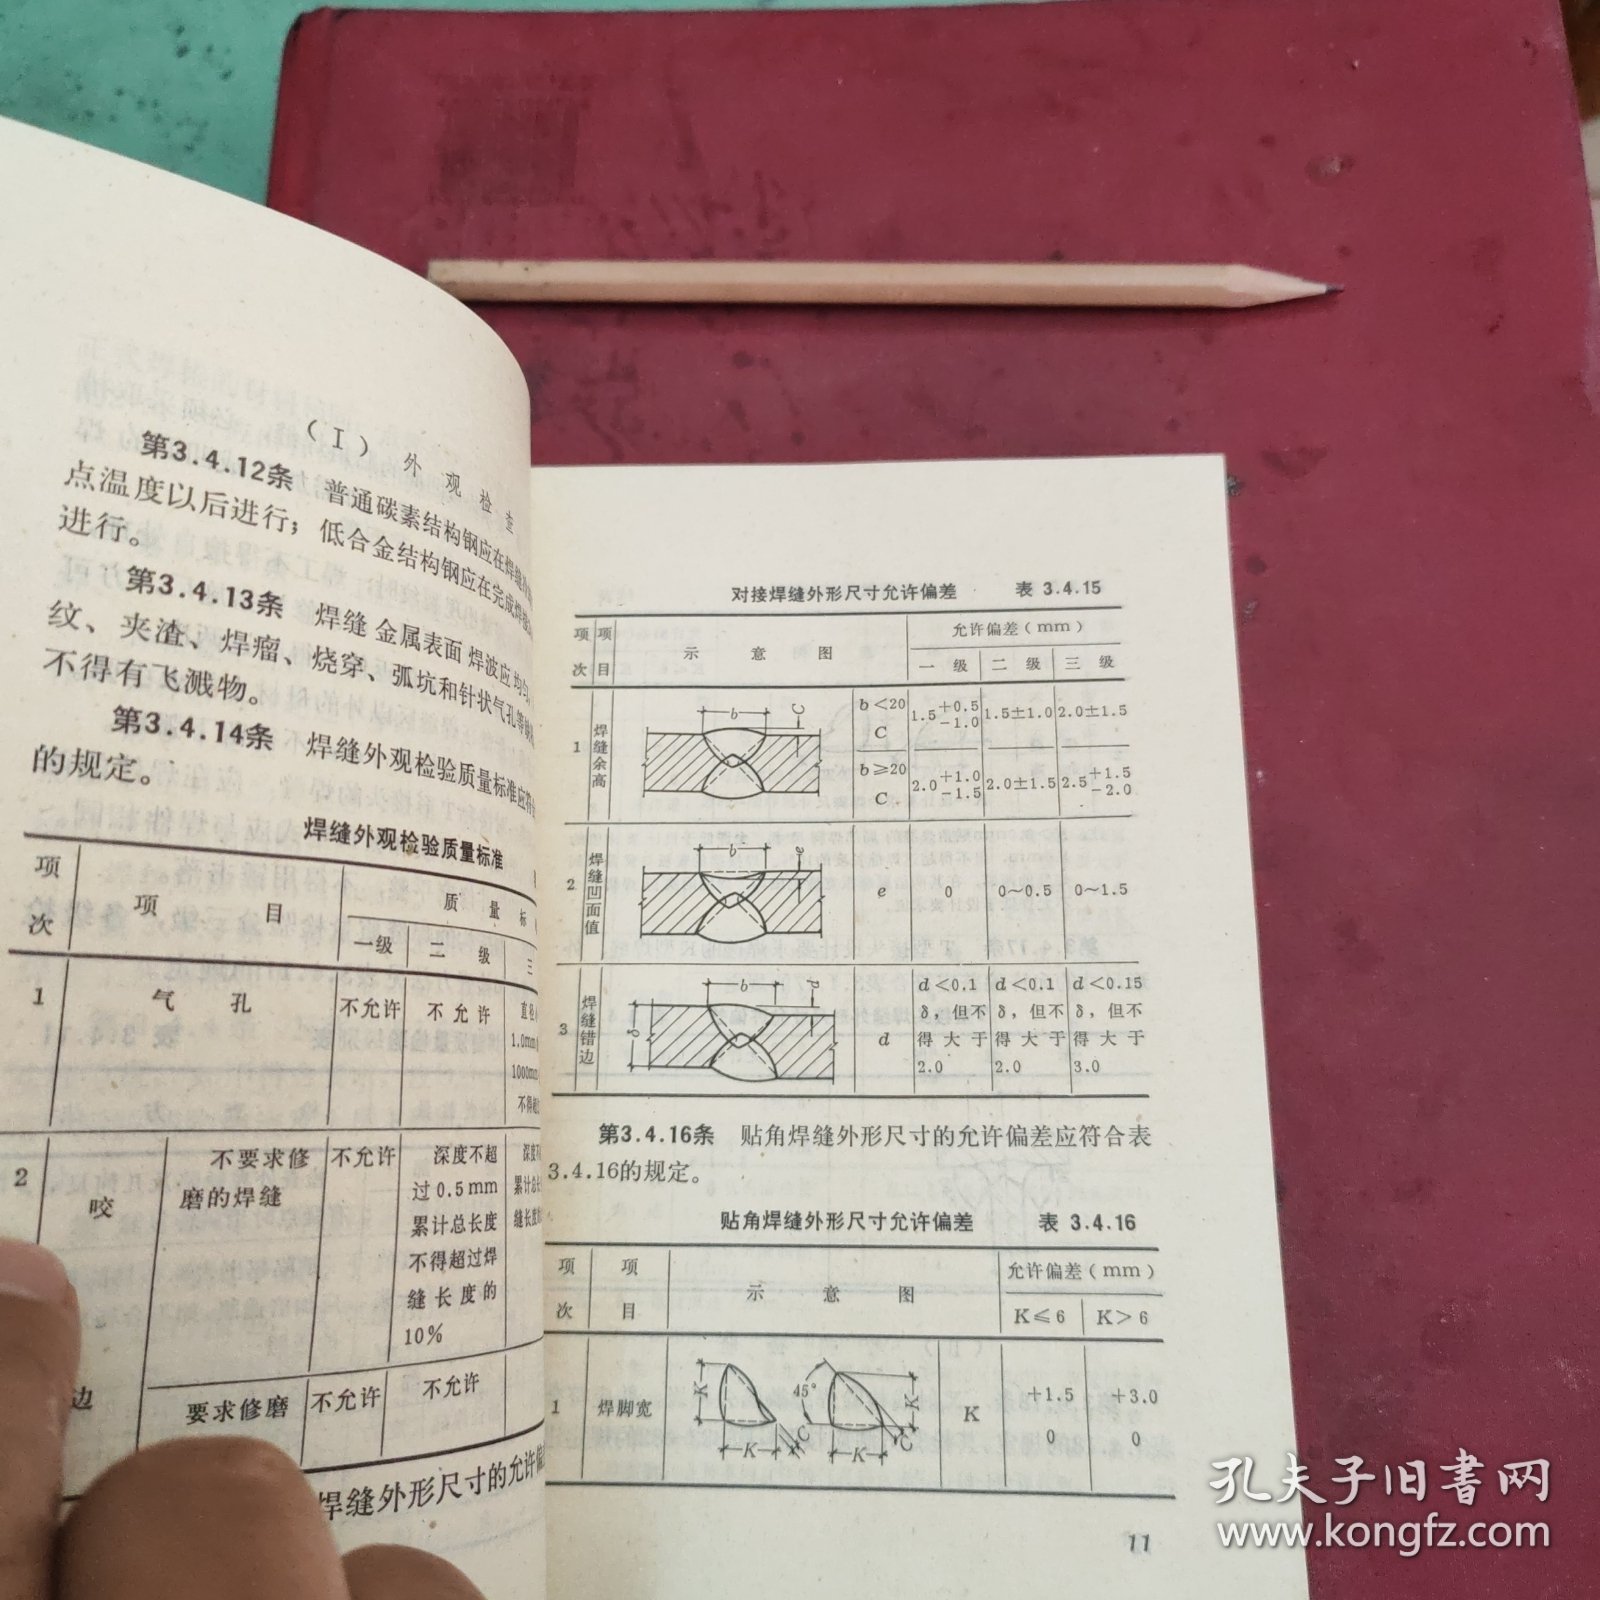 （Ⅰ） 外观检查
第3.4.12条 普通碳素结构钢应在焊缝
点温度以后进行；低合金结构钢应在完成焊接
进行。
第3.4.13条 焊缝金属表面焊波应均匀，
纹、夹渣、焊瘤、烧穿、弧坑和针状气孔等缺
不得有飞溅物。
第3.4.14条 焊缝外观检验质量标准应符合
的规定。
焊缝外观检验质量标准
项次 项目 质量标
一级 二级 三
1 气孔 不允许 不允许 直径
1.0mm
1000mm
不得超
2 咬边 不要求修磨的焊缝 不允许 深度不超 深度不
过0.5mm 累计总长
累计总长度 缝长度
不得超过焊
缝长度的
10%
要求修磨 不允许 不允许
焊缝外形尺寸的允许偏
对接焊缝外形尺寸允许偏差 表 3.4.15
项次 项目 示意图 允许偏差（mm）
一级 二级 三级
1 焊缝余高 b C b<20 C 1.5+0.5 -1.0 1.5±1.0 2.0±1.5
b≥20 C 2.0+1.0 -1.5 2.0±1.5 2.5+1.5 -2.0
2 焊缝凹面值 b e e 0 0～0.5 0～1.5
3 焊缝错边 b d δ d d<0.1 d<0.1 d<0.15
δ，但不 δ，但不 δ，但不
得大于 得大于 得大于
2.0 2.0 3.0
第3.4.16条 贴角焊缝外形尺寸的允许偏差应符合表
3.4.16的规定。
贴角焊缝外形尺寸允许偏差 表 3.4.16
项次 项目 示意图 允许偏差（mm）
K≤6 K>6
1 焊脚宽 K K C 45° K K C K +1.5 0 +3.0 0
11
孔夫子旧书网
www.kongfz.com